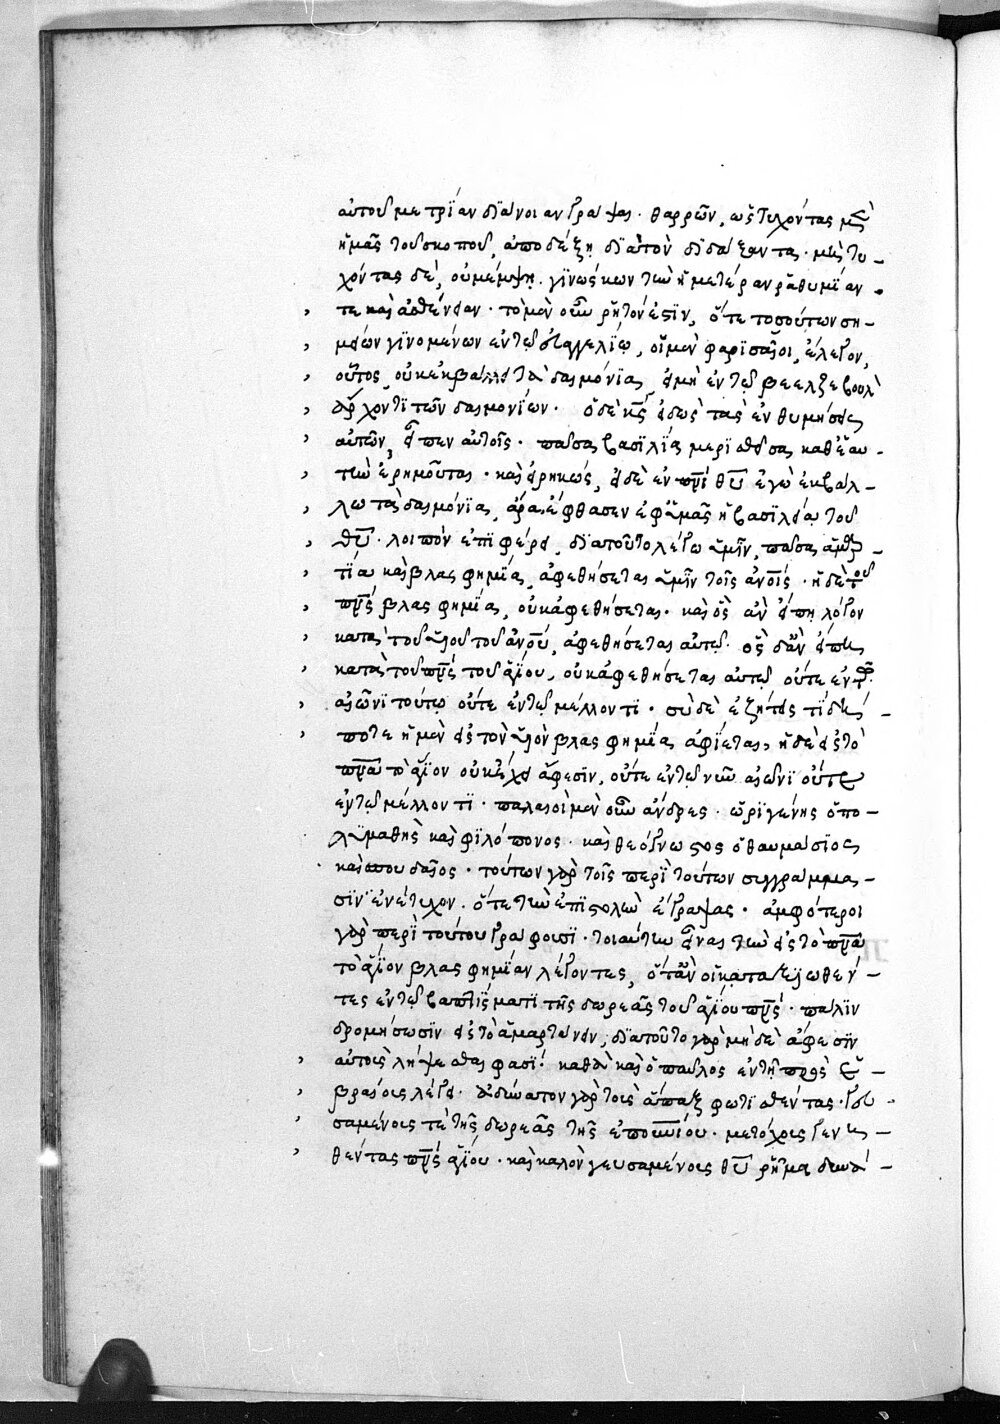 αὐτοῦ μετρίαν διάνοιαν γράψαι· θαρρῶν, ὡς τυχόντας μὲν
ἡμᾶς τοῦ σκοποῦ, ἀποδέξῃ διὰ τὸν διδάξαντα· μὴ τυ-
χόντας δὲ, οὐ μέμψῃ. γινώσκων τὴν ἡμετέραν ῥαθυμίαν
τε καὶ ἀσθένειαν· τὸ μὲν οὖν ῥητόν ἐστιν, ὅτε τοσούτων ση-
μείων γινομένων ἐν τῷ εὐαγγελίῳ, οἱ μὲν φαρισαῖοι, ἔλεγον,
οὗτος, οὐκ ἐκβάλλει τὰ δαιμόνια, εἰ μὴ ἐν τῷ βεελζεβοὺλ
ἄρχοντι τῶν δαιμονίων· ὁ δὲ κς̅ εἰδὼς τὰς ἐνθυμήσεις
αὐτῶν, εἶπεν αὐτοῖς· πᾶσα βασιλεία μερισθεῖσα καθ' ἑαυ-
τὴν ἐρημοῦται· καὶ εἰρηκώς, εἰ δὲ ἐν πνι̅ θυ̅ ἐγὼ ἐκβάλ-
λω τὰ δαιμόνια, ἄρα ἔφθασεν ἐφ' ὑμᾶς ἡ βασιλεία τοῦ
θυ̅· λοιπὸν ἐπιφέρει, διὰ τοῦτο λέγω ὑμῖν, πᾶσα ἁμαρ-
τία καὶ βλασφημία, ἀφεθήσεται ὑμῖν τοῖς ἀνοις̅· ἡ δὲ τοῦ
πνς̅ βλασφημία, οὐκ ἀφεθήσεται· καὶ ὃς ἂν εἴπῃ λόγον
κατὰ τοῦ υἱοῦ τοῦ ἀνου̅, ἀφεθήσεται αὐτῷ· ὃς δ' ἂν εἴπῃ
κατὰ τοῦ πνς̅ τοῦ ἁγίου, οὐκ ἀφεθήσεται αὐτῷ οὔτε ἐν τῷ
αἰῶνι τούτῳ οὔτε ἐν τῷ μέλλοντι· σὺ δὲ ἐζήτεις τί δή-
ποτε ἡ μὲν εἰς τὸν υἱὸν βλασφημία ἀφίεται, ἡ δὲ εἰς τὸ
πνα̅ τὸ ἅγιον οὐκ ἔχει ἄφεσιν, οὔτε ἐν τῷ νῦν αἰῶνι οὔτε
ἐν τῷ μέλλοντι· παλαιοὶ μὲν οὖν ἄνδρες· ὠριγένης ὁ πο-
λυμαθὴς καὶ φιλόπονος· καὶ θεόγνωστος ὁ θαυμάσιος
καὶ σπουδαῖος· τούτων γὰρ τοῖς περὶ τούτων συγγράμμα-
σιν ἐνέτυχον. ὅτε τὴν ἐπιστολὴν ἔγραψας· ἀμφότεροι
γὰρ περὶ τούτου γράφουσι· τοιαύτην εἶναι τὴν εἰς τὸ πνα̅
τὸ ἅγιον βλασφημίαν λέγοντες, ὅταν οἱ καταξιωθέν-
τες ἐν τῷ βαπτίσματι τῆς δωρεᾶς τοῦ ἁγίου πνς̅· παλιν
δρομήσωσιν εἰς τὸ ἁμαρτάνειν, διὰ τοῦτο γὰρ μὴ δὲ ἄφεσιν
αὐτοὺς λήψεσθαι φασί· καθὰ καὶ ὁ παῦλος ἐν τῇ πρὸς ἑ-
βραίους λέγει· ἀδύνατον γὰρ τοὺς ἅπαξ φωτισθέντας· γευ-
σαμένους τὲ τῆς δωρεᾶς τῆς ἐπουνίου· μετόχους γενη-
θέντας πνς̅ ἁγίου· καὶ καλὸν γευσαμένους θυ̅ ῥῆμα δυνά-